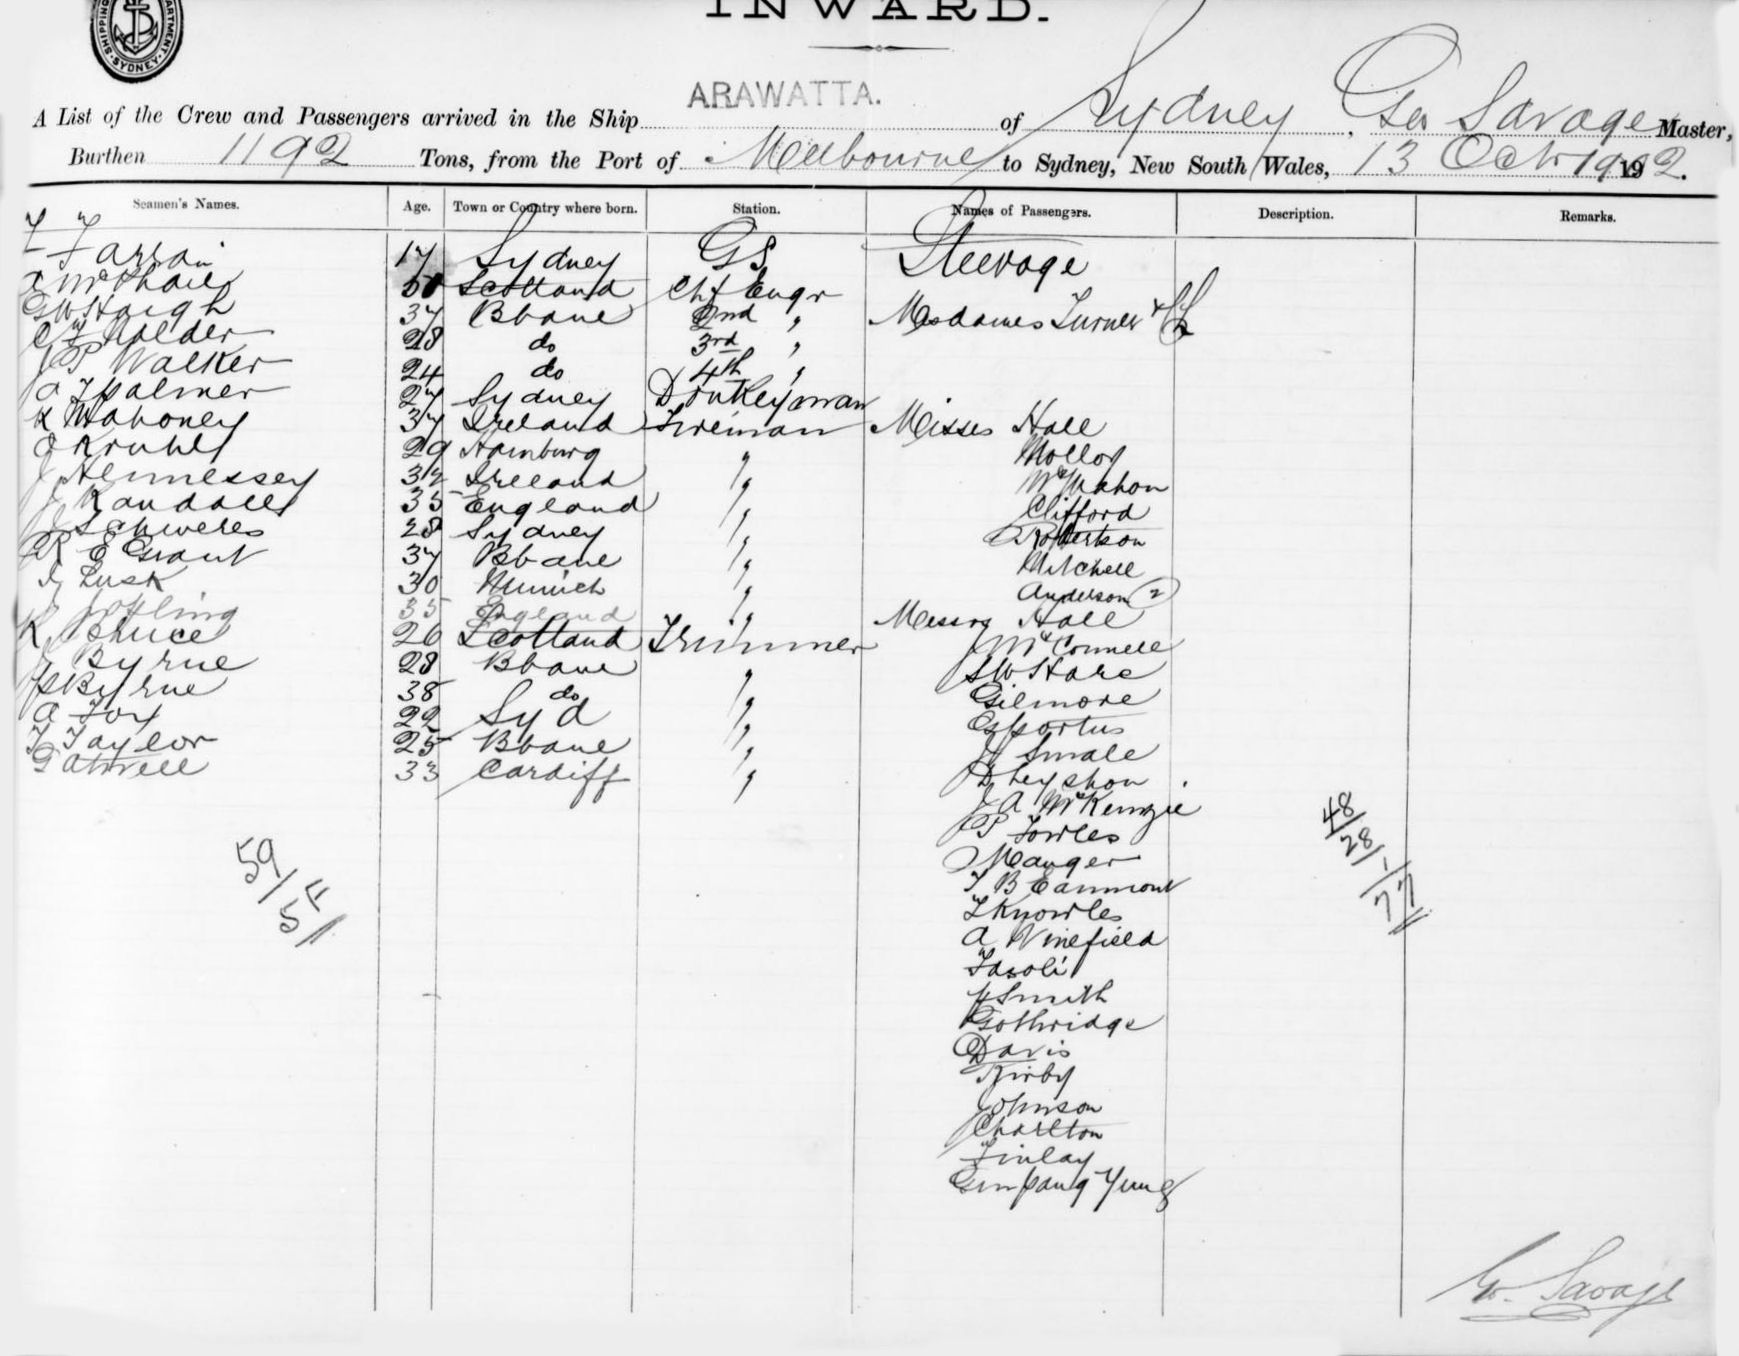 INWARD.
SHIPPING DEPARTMENT SYDNEY
A List of the Crew and Passengers arrived in the Ship ARAWATTA. of Sydney, Geo Savage Master,
Burthen 1192 Tons, from the Port of Melbourne to Sydney, New South Wales, 13 Octr 1902.
Seamen's Names. Age. Town or Country where born. Station. Names of Passengers. Description. Remarks.
17 Sydney GS Steerage
A McPhail 50 Scotland Chf Engr
GW Haigh 37 Bbane 2nd " Mesdames Turner
C F Holder 28 do 3rd "
J P Walker 24 do 4th "
A J Palmer 27 Sydney Donkeyman
K Mahoney 37 Ireland Fireman Misses Hall
29 Hamburg " Molloy
J Hennessey 32 Ireland " McMahon
J Randall 35 England " Clifford
28 Sydney " Robertson
R E Grant 37 Bbane " Mitchell
Lusk 30 Munich " Anderson (2)
35 England " Messrs Hall
R Bruce 26 Scotland Trimmer McConnell
J Byrne 28 Bbane " SW Hare
J Byrne 38 do " Gilmore
A Foy 22 Syd "
F Taylor 25 Bbane " J Smale
G Atwell 33 Cardiff " D Leyshon
J A McKenzie
P Fowles
Mauger
T Beaumont
L Knowles
A Vinefield
Fasoli
J Smith
Gothridge
Davis
Kirby
Johnson
Charlton
Finlay
Gim Pang Yung
59/
5F/
48/
28/
1/
77
Geo. Savage